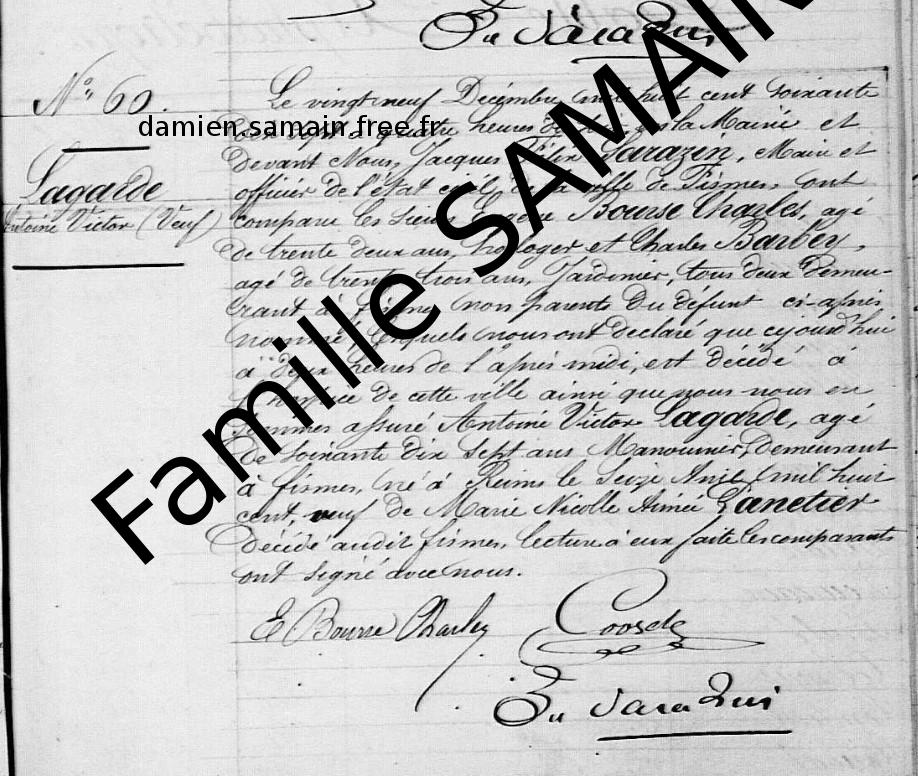 Nº 60.
damien.samain.free.fr
Famille SAMAIN
Lagarde
Antoine Victor (Veuf)
Le vingt neuf Décembre mil huit cent soixante
dix sept à quatre heures la Mairie et
devant Nous, Jacques Félix Sarazin, Maire et
officier de l'état civil de la ville de Fismes, ont
comparu les sieurs Eugène Bourse Charles, agé
de trente deux ans, horloger et Charles Barbey,
agé de trente trois ans, Jardinier, tous deux demeu-
rant à Fismes non parents du défunt ci-après
nommé, lesquels nous ont declaré que cejourd'hui
à deux heures de l'après midi, est décédé à
l'hospice de cette ville ainsi que nous nous en
sommes assuré Antoine Victor Lagarde, agé
de soixante dix sept ans Manouvrier, demeurant
à fismes, né à Reims le seize mil huit
cent, veuf de Marie Nicolle Aimée Lanetier
décédé audit fismes, lecture à eux faite les comparants
ont signé avec nous.
E Bourse Charles